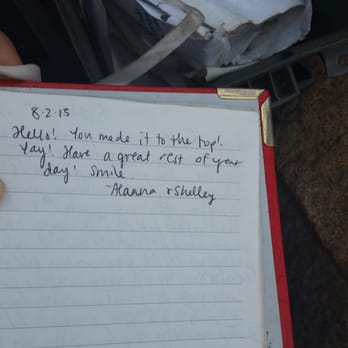 8-2-15
Hello! You made it to the top!
Yay! Have a great rest of your
day! Smile
-Alanna + Shelley